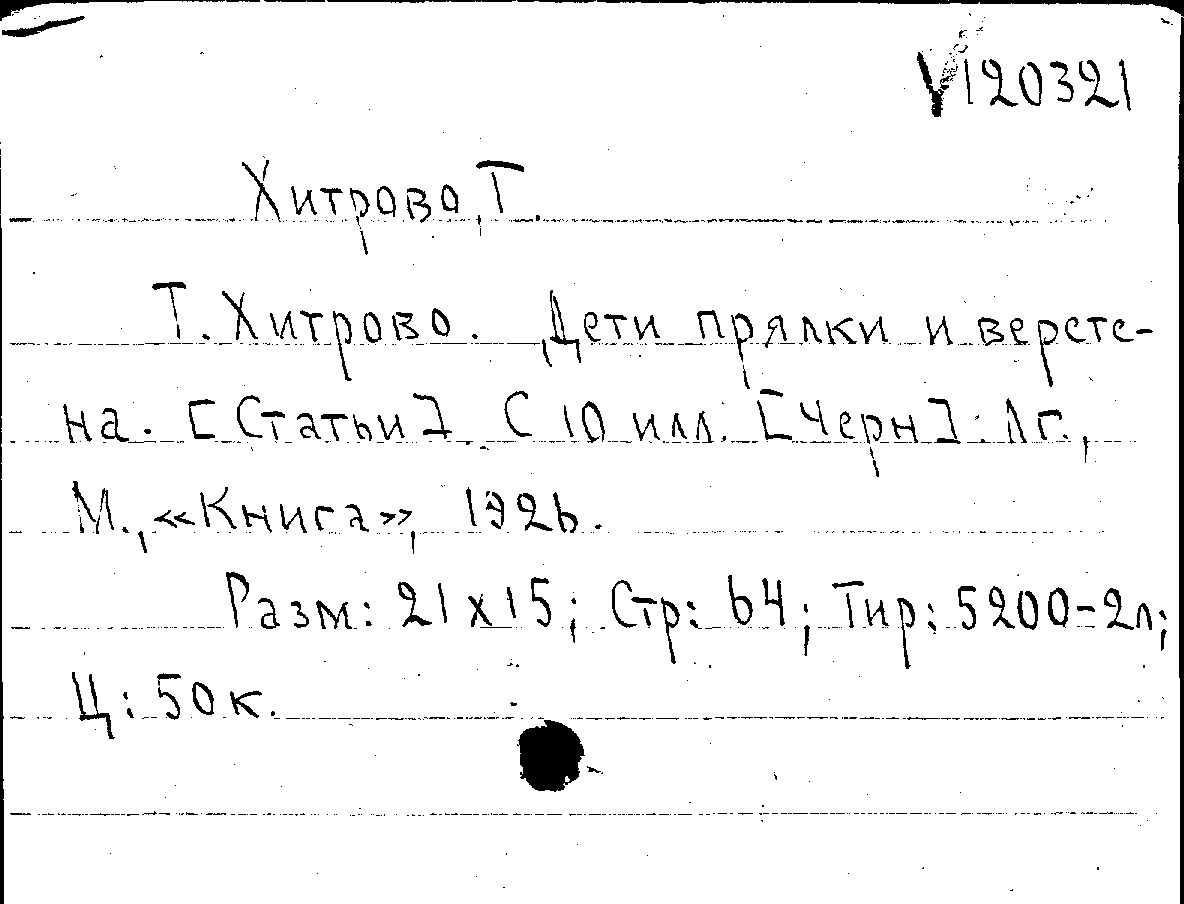 V120321
Хитрово, Т.
Т. Хитрово. Дети прялки и верете-
на. [Статьи]. С 10 илл. [Черн]: Лг.,
М., «Книга», 1926.
Разм: 21x15; Стр: 64; Тир: 5200-2л;
Ц: 50к.